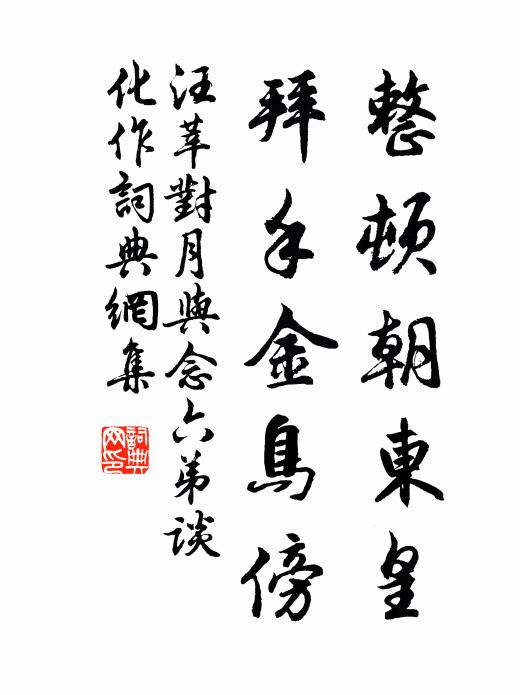 整頓朝東皇
拜手金烏傍
汪莘對月與念六弟談
化作詞典網集
詞典網印